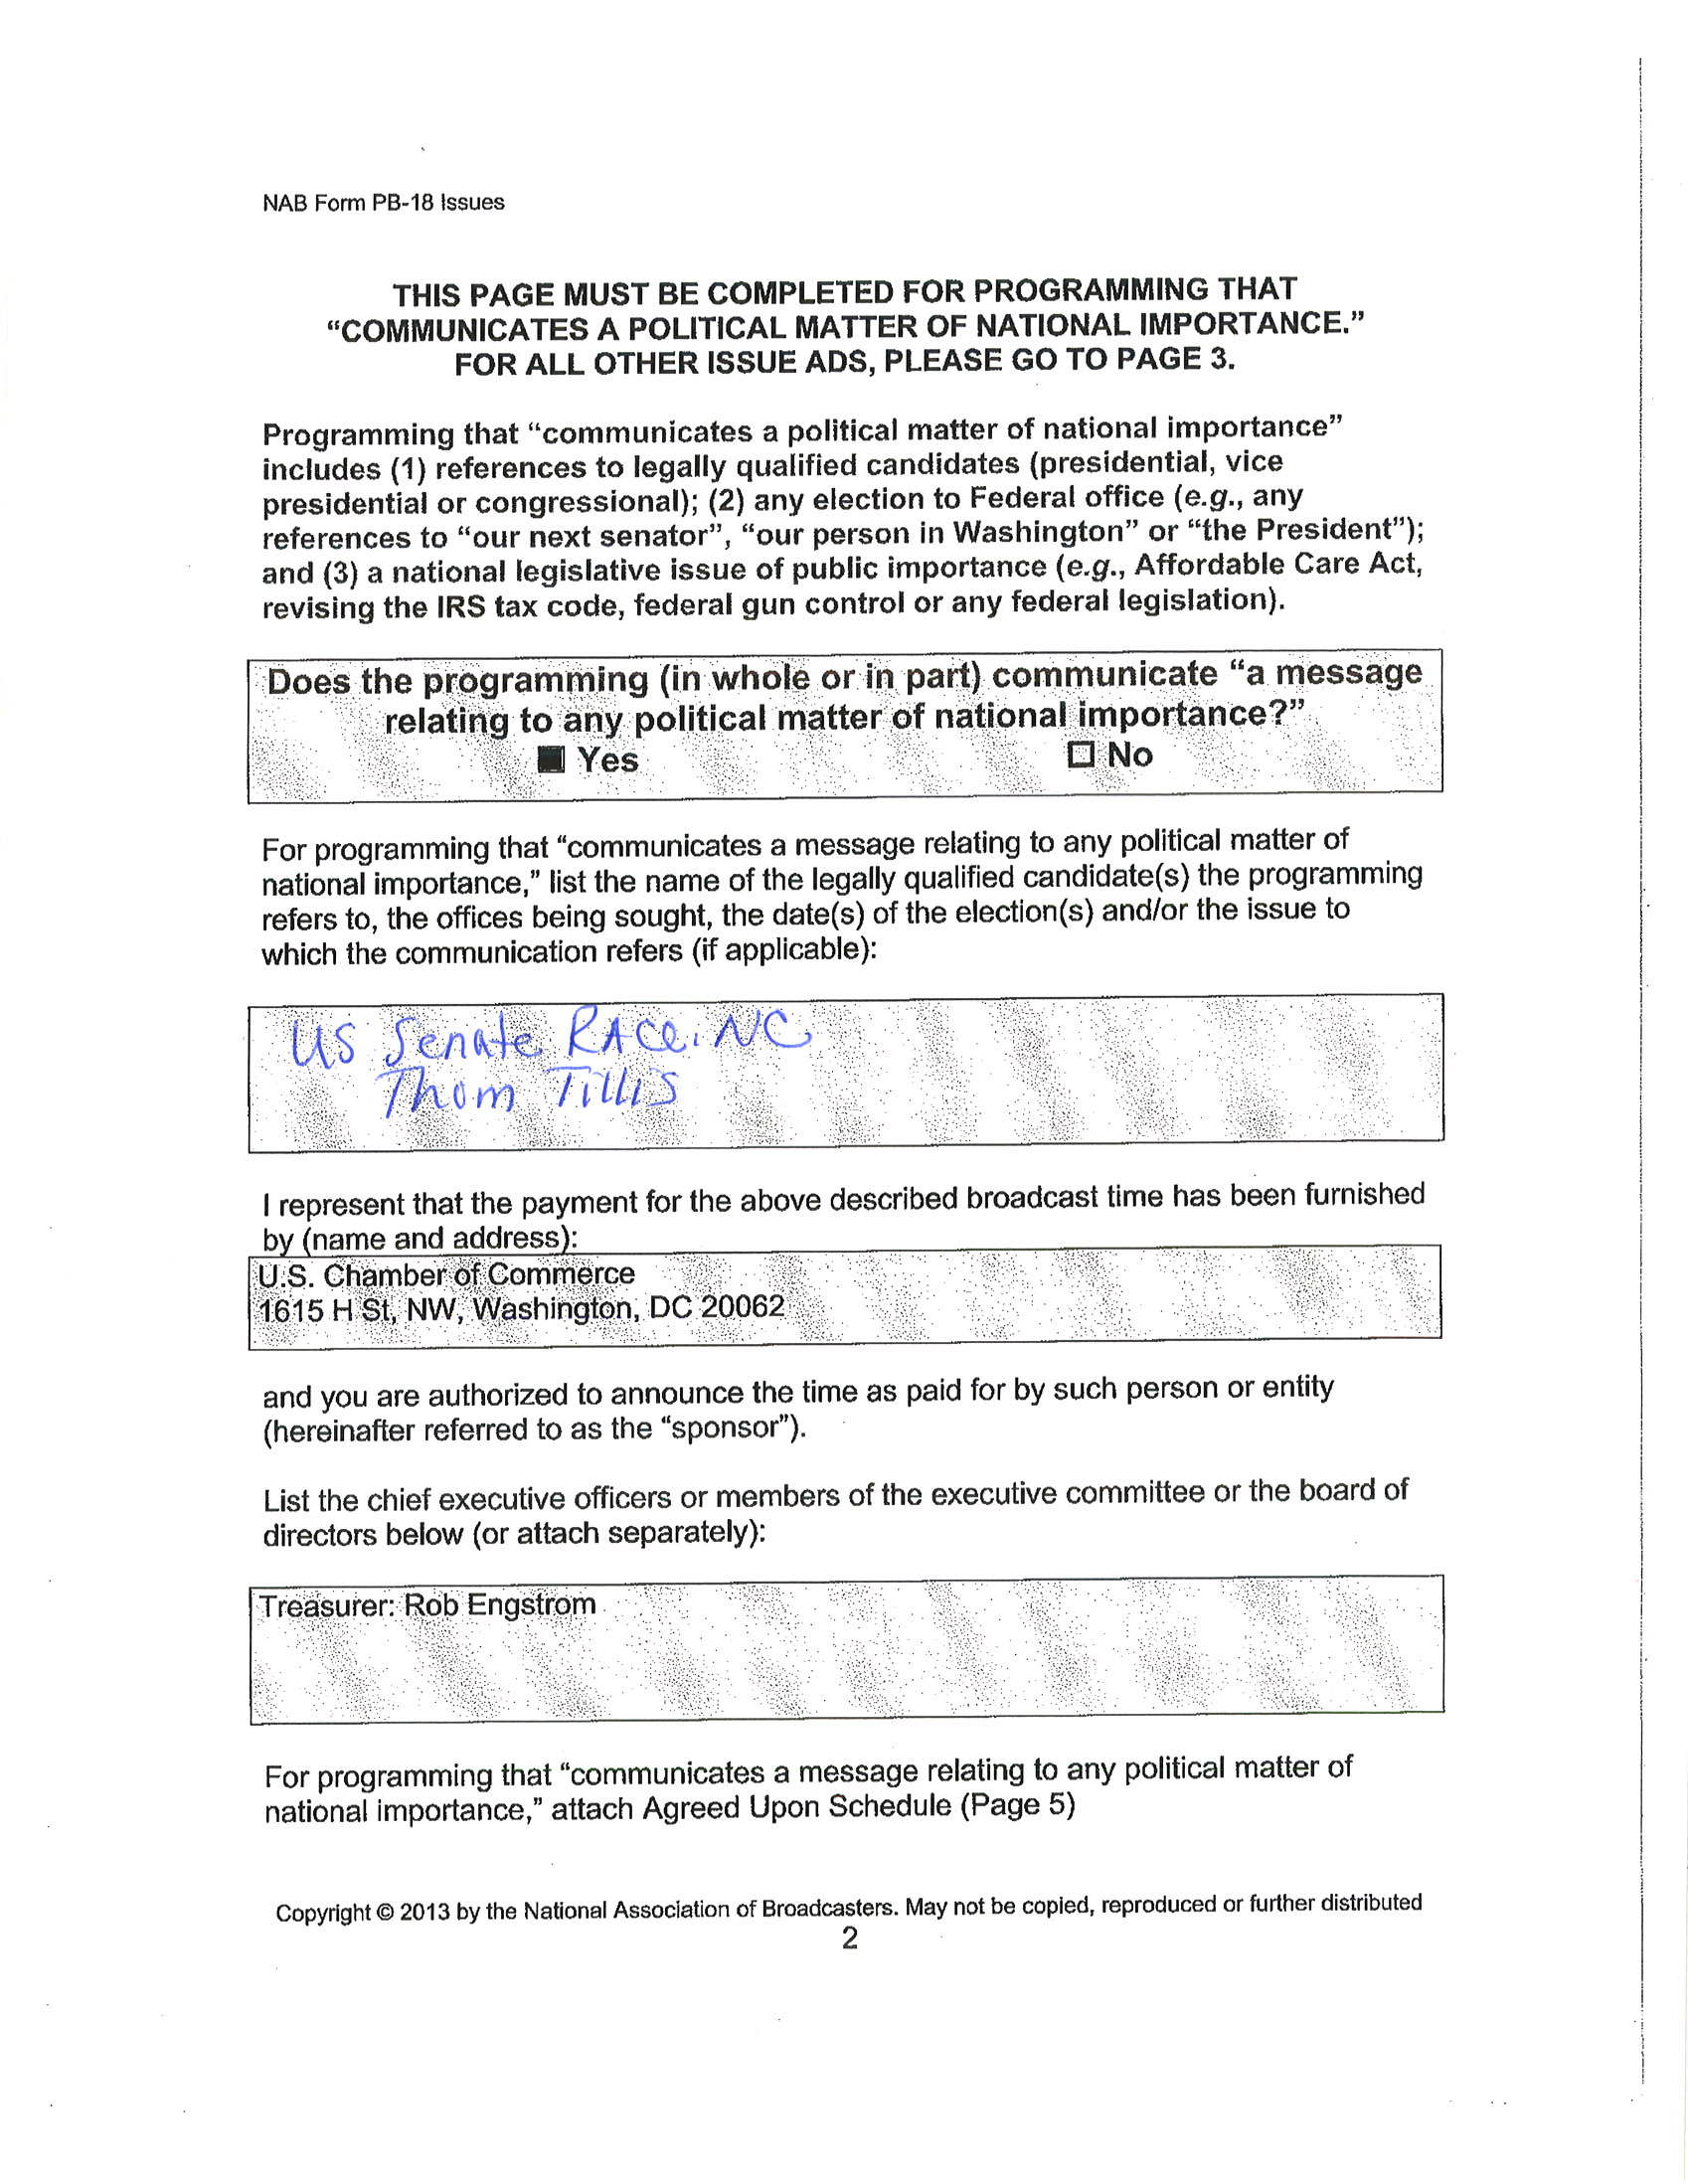 NAB Form PB-18 Issues
THIS PAGE MUST BE COMPLETED FOR PROGRAMMING THAT
“COMMUNICATES A POLITICAL MATTER OF NATIONAL IMPORTANCE.”
FOR ALL OTHER ISSUE ADS, PLEASE GO TO PAGE 3.
Programming that “communicates a political matter of national importance”
includes (1) references to legally qualified candidates (presidential, vice
presidential or congressional); (2) any election to Federal office (e.g., any
references to “our next senator”, “our person in Washington” or “the President”);
and (3) a national legislative issue of public importance (e.g., Affordable Care Act,
revising the IRS tax code, federal gun control or any federal legislation).
Does the programming (in whole or in part) communicate “a message
relating to any political matter of national importance?”
■ Yes ☐ No
For programming that “communicates a message relating to any political matter of
national importance,” list the name of the legally qualified candidate(s) the programming
refers to, the offices being sought, the date(s) of the election(s) and/or the issue to
which the communication refers (if applicable):
US Senate RACe. NC
Thom Tillis
I represent that the payment for the above described broadcast time has been furnished
by (name and address):
U.S. Chamber of Commerce
1615 H St, NW, Washington, DC 20062
and you are authorized to announce the time as paid for by such person or entity
(hereinafter referred to as the “sponsor”).
List the chief executive officers or members of the executive committee or the board of
directors below (or attach separately):
Treasurer: Rob Engstrom
For programming that “communicates a message relating to any political matter of
national importance,” attach Agreed Upon Schedule (Page 5)
Copyright © 2013 by the National Association of Broadcasters. May not be copied, reproduced or further distributed
2